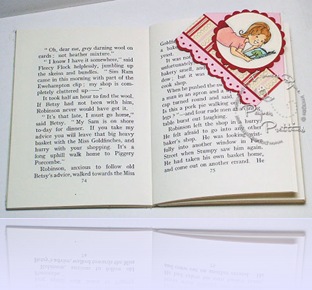 " Oh, dear me, grey darning wool on
cards : not heather mixture."
" I know I have it somewhere," said
Fleecy Flock helplessly, jumbling up
the skeins and bundles. " Sim Ram
came in this morning with part of the
Ewehampton clip; my shop is com-
pletely cluttered up—"
It took half an hour to find the wool.
If Betsy had not been with him,
Robinson never would have got it.
" It's that late, I must go home,"
said Betsy. " My Sam is on shore
to-day for dinner. If you take my
advice you will leave that big heavy
basket with the Miss Goldfinches, and
hurry with your shopping. It's a
long uphill walk home to Piggery
Porcombe."
Robinson, anxious to follow old
Betsy's advice, walked towards the Miss
74
Goldfin
a baker
some
It was
unfortunate
bakery
cook shop.
When he pushed the
a man in an apron and a
cup turned round and said,
is this a pork pie walking on
legs ? "—and four rude men at a
table burst out laughing.
Robinson left the shop in a hurry.
He felt afraid to go into any other
baker's shop. He was looking wist-
fully into another window in Fore
Street when Stumpy saw him again.
He had taken his own basket home,
and come out on another errand. He
75